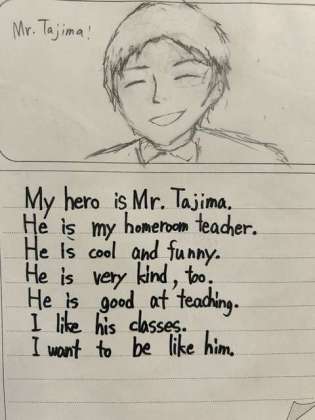 Mr. Tajima!
My hero is Mr. Tajima.
He is my homeroom teacher.
He is cool and funny.
He is very kind, too.
He is good at teaching.
I like his classes.
I want to be like him.